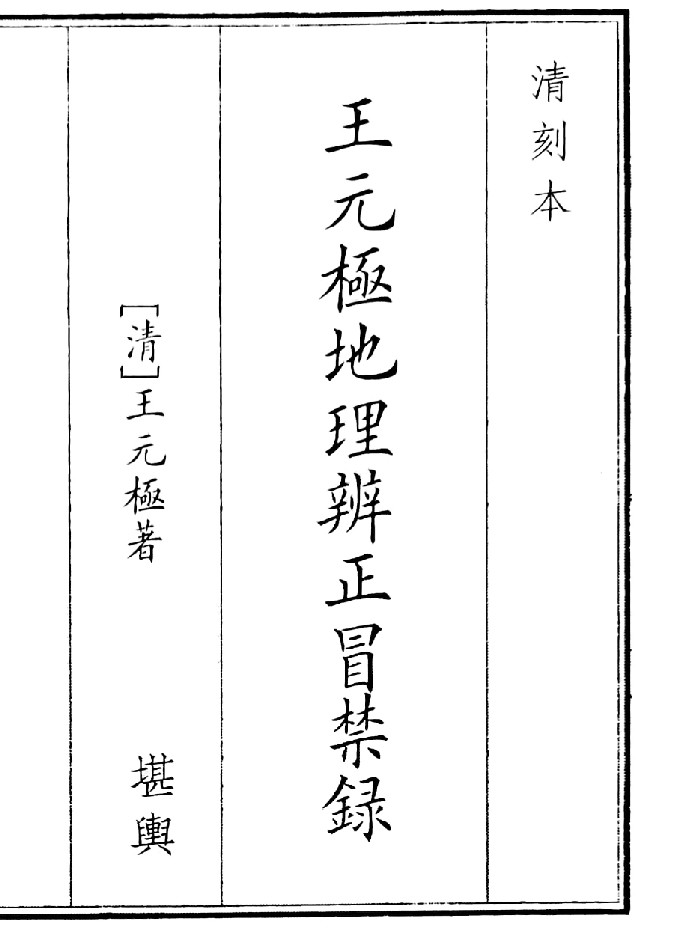 清刻本
王元極地理辨正冒禁録
[清]王元極著
堪輿